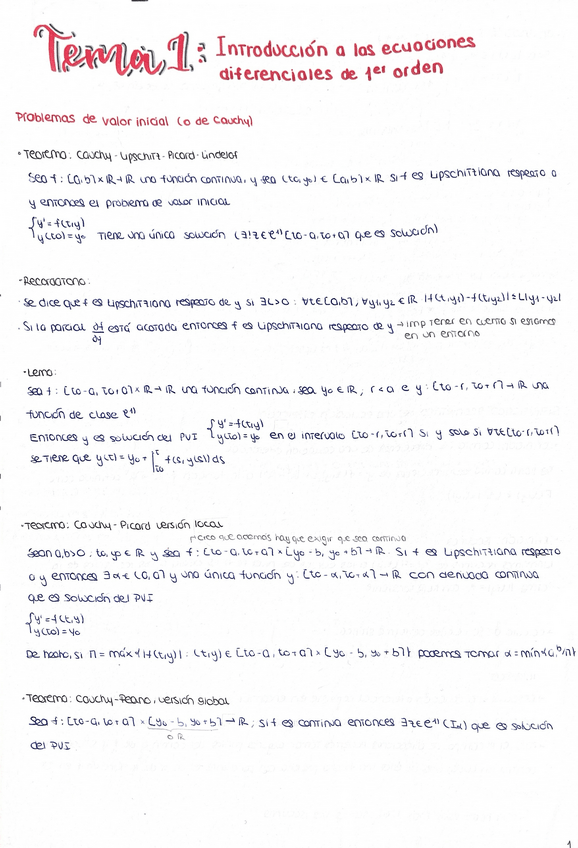 Tema 1: Introducción a las ecuaciones
diferenciales de 1er orden
Problemas de valor inicial (o de Cauchy)
• Teorema: Cauchy-Lipschitz-Picard-Lindelöf
Sea f: [a,b] × ℝ → ℝ una función continua, y sea (t0,y0) ∈ [a,b] × ℝ Si f es Lipschitziana respecto a
y entonces el problema de valor inicial
{ y' = f(t,y)
y(t0) = y0 tiene una única solución (∃! z ∈ C1) [t0-a, t0+a] que es solución)
- Recordatorio:
· Se dice que f es Lipschitziana respecto de y si ∃L>0 : ∀t∈[a,b], ∀y1,y2 ∈ ℝ |f(t,y1)-f(t,y2)| ≤ L|y1-y2|
· Si la parcial ∂f/∂y está acotada entonces f es Lipschitziana respecto de y → imp tener en cuenta si estamos
en un entorno
- Lema:
Sea f: [t0-a, t0+a] × ℝ → ℝ una función continua, sea y0 ∈ ℝ, r<a e y: [t0-r, t0+r] → ℝ una
función de clase C1)
Entonces y es solución del PVI { y' = f(t,y)
y(t0) = y0 en el intervalo [t0-r, t0+r] si y solo si ∀t∈[t0-r, t0+r]
se tiene que y(t) = y0 + ∫t0t f(s, y(s)) ds
· Teorema: Cauchy-Picard versión local
creo que además hay que exigir que sea continua
Sean a,b>0, t0,y0 ∈ ℝ y sea f: [t0-a, t0+a] × [y0-b, y0+b] → ℝ. Si f es Lipschitziana respecto
a y entonces ∃ α ∈ (0,a] y una única función y: [t0-α, t0+α] → ℝ con derivada continua
que es solución del PVI
{ y' = f(t,y)
y(t0) = y0
De hecho, si M = máx{|f(t,y)| : (t,y) ∈ [t0-a, t0+a] × [y0-b, y0+b]} podemos tomar α = mín{a, b/M}
· Teorema: Cauchy-Peano, versión global
Sea f: [t0-a, t0+a] × [y0-b, y0+b] → ℝ; si f es continua entonces ∃ z ∈ C1) (Iα) que es solución
o ℝ
del PVI
1